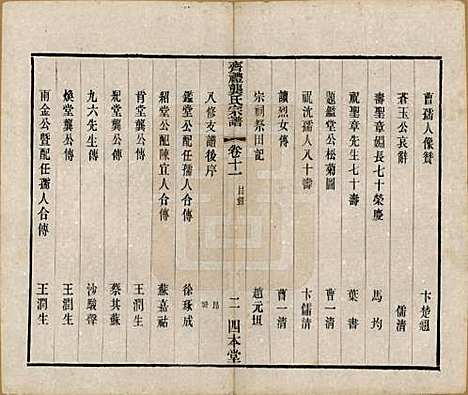 曹孺人像贊 卞楚翹
蒼玉公哀辭 儒清
壽聖章媼長七十榮慶 馬灼
祝聖章先生七十壽 葉書
題鑑堂公松菊圖 曹一清
祝沈孺人八十壽 卞儒清
讀烈女傳 曹一清
宗祠祭田記 趙元垣
齊禮龔氏宗譜 卷十一 目錄 二 四本堂
八修支譜後序
鑑堂公配任孺人合傳 徐琢成
紹堂公配陳宜人合傳 蘇嘉祜
肯堂龔公傳 王潤生
彩堂龔公傳 蔡其蘇
九六先生傳 沙駿聲
煥堂龔公傳 王潤生
雨金公暨配任孺人合傳 王潤生